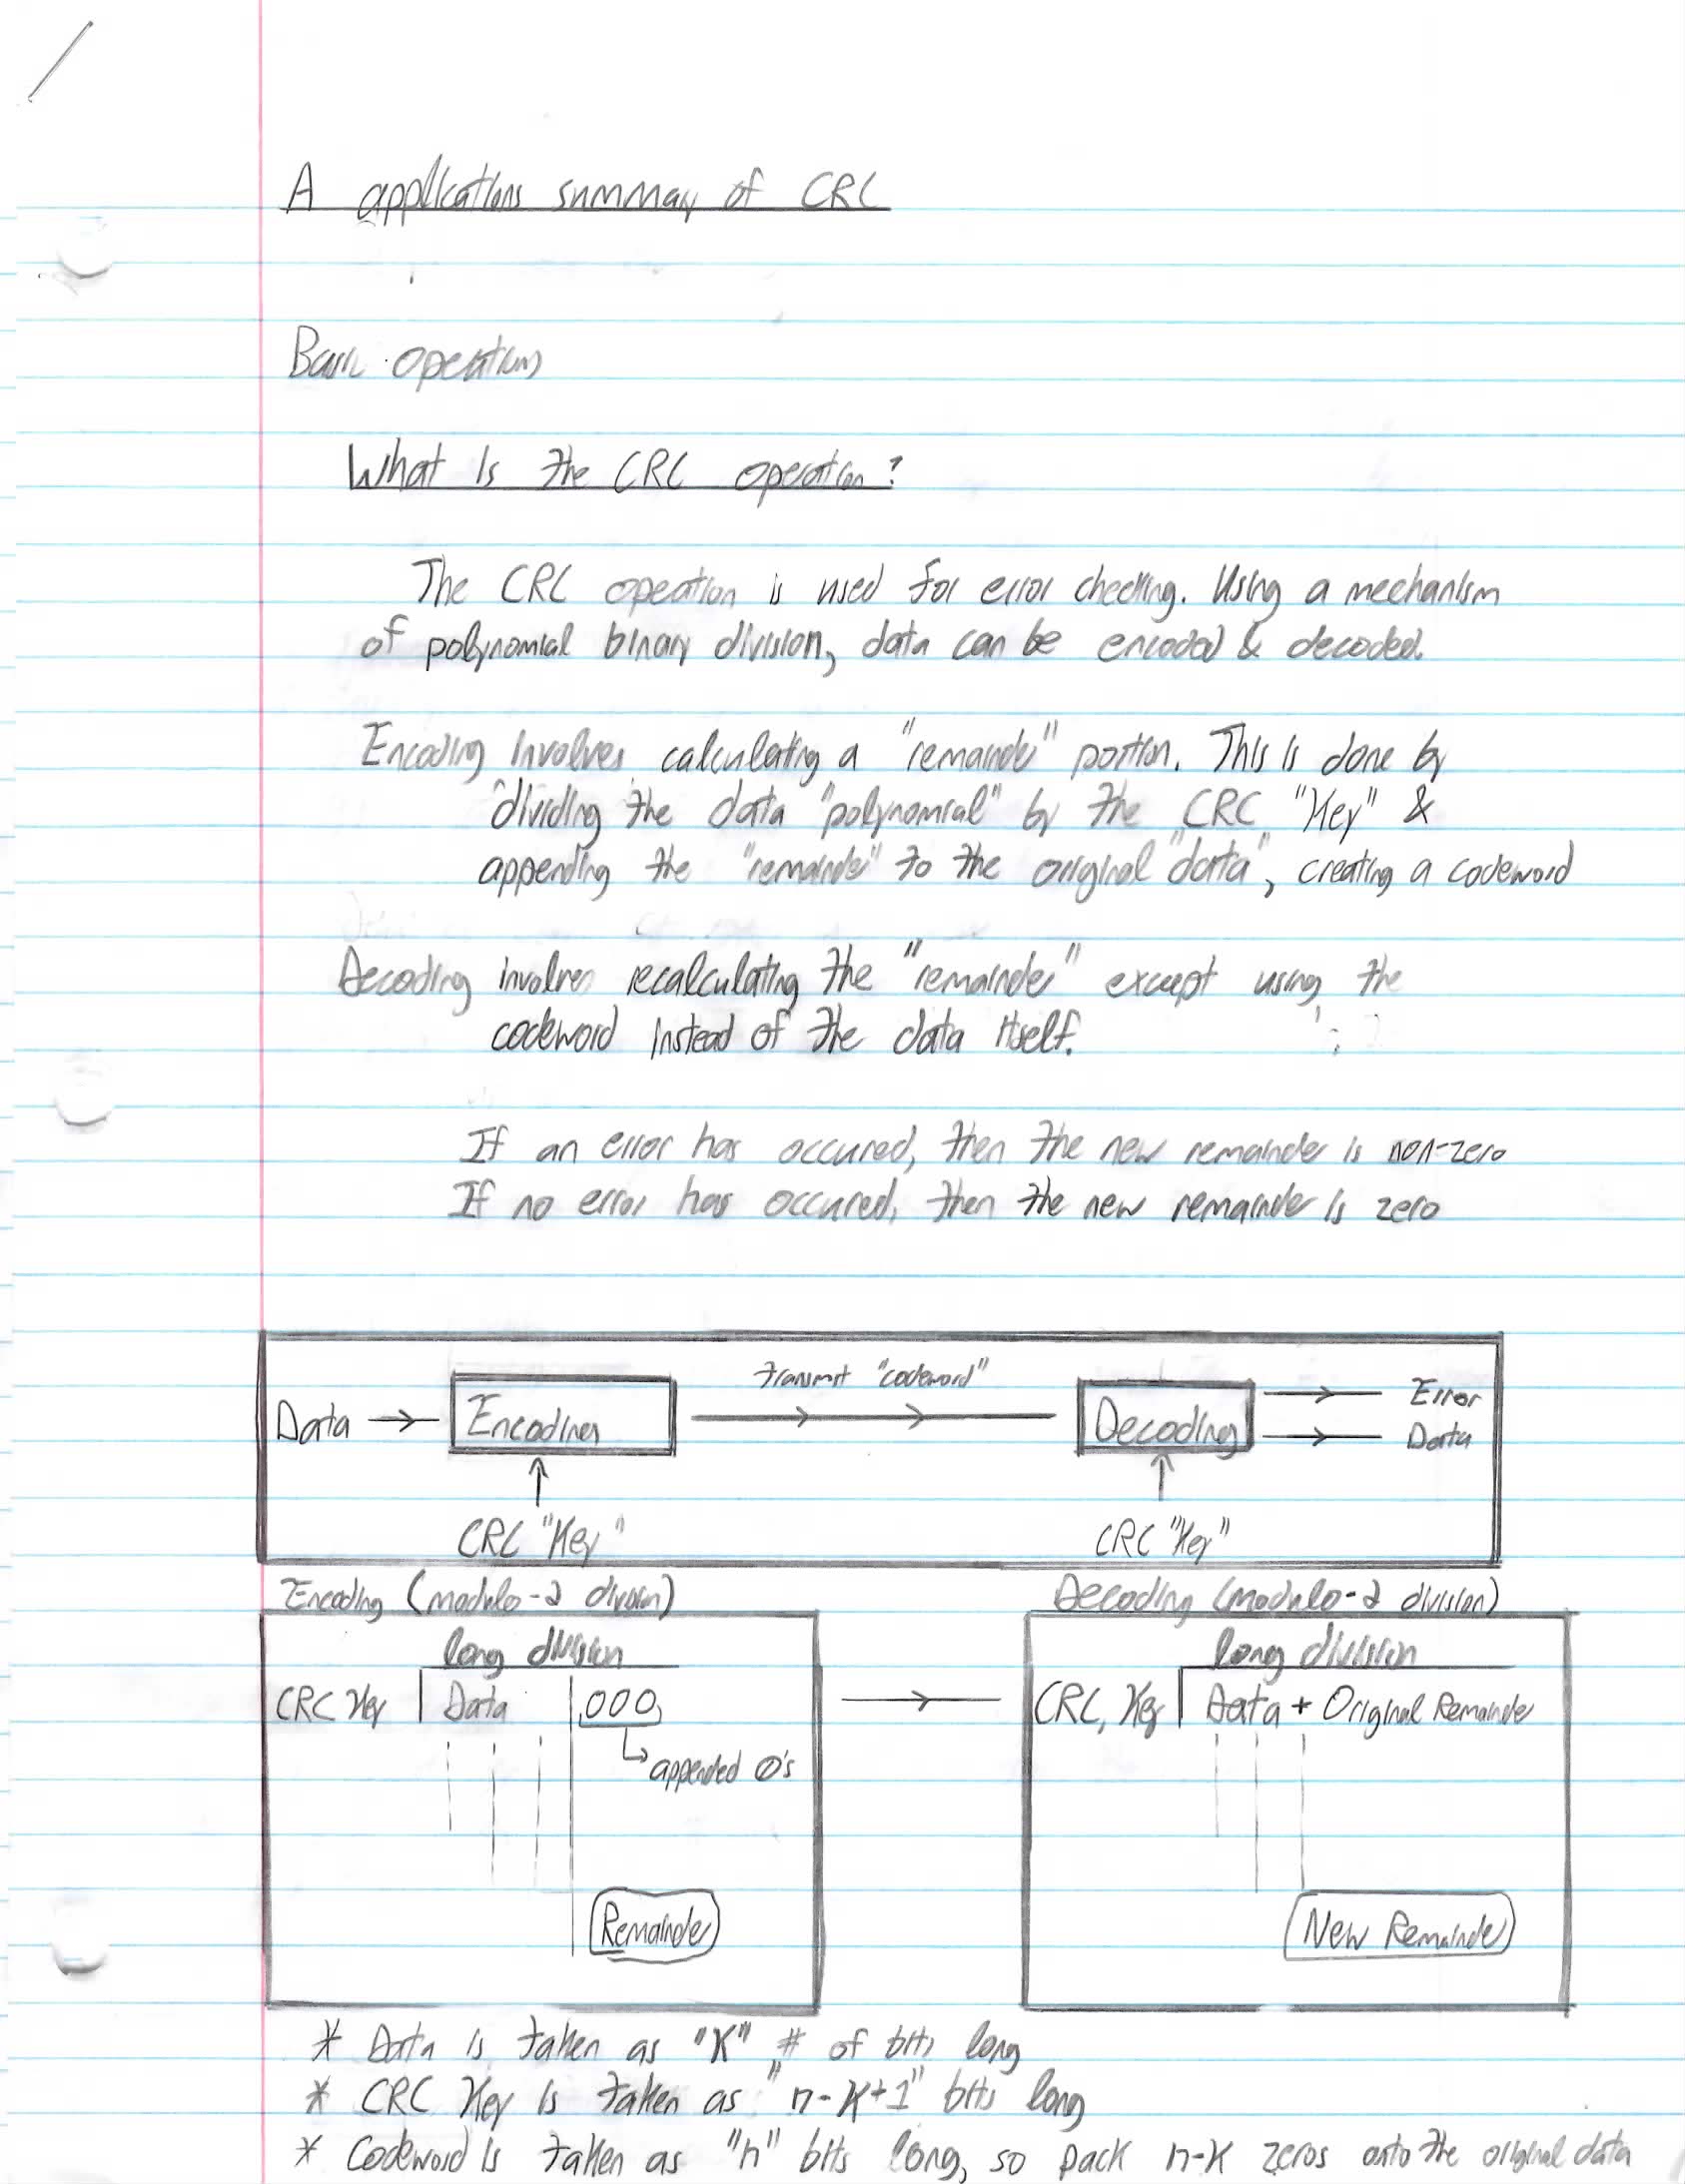 A applications summary of CRC
Basic operations
What is the CRC operation?
The CRC operation is used for error checking. Using a mechanism
of polynomial binary division, data can be encoded & decoded.
Encoding involves calculating a "remainder" portion. This is done by
dividing the data "polynomial" by the CRC "Key" &
appending the "remainder" to the original "data", creating a codeword
Decoding involves recalculating the "remainder" except using the
codeword instead of the data itself.
If an error has occured, then the new remainder is non-zero
If no error has occured, then the new remainder is zero
transmit "codeword"
Data → Encoding Decoding Error
Data
CRC "Key" CRC "Key"
Encoding (modulo-2 division) Decoding (modulo-2 division)
long division long division
CRC Key Data 000 CRC Key Data + Original Remainder
appended 0's
Remainder New Remainder
* Data is taken as "K" # of bits long
* CRC Key is taken as "n-K+1" bits long
* Codeword is taken as "n" bits long, so pack n-K zeros onto the original data